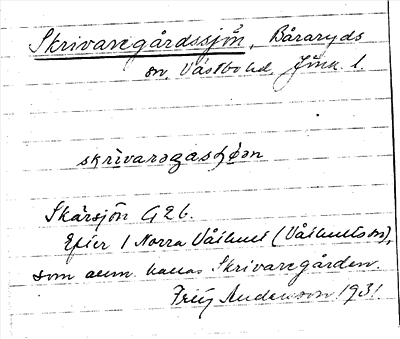 Skrivaregårdssjön, Båraryds
sn, Västbo hd, Jönk. l.
skrìvaragasʃöən
Skärsjön G26.
Efter 1 Norra Våthult (Våthultssn),
som äem. kallas Skrivaregården.
Frey Andersson 1931